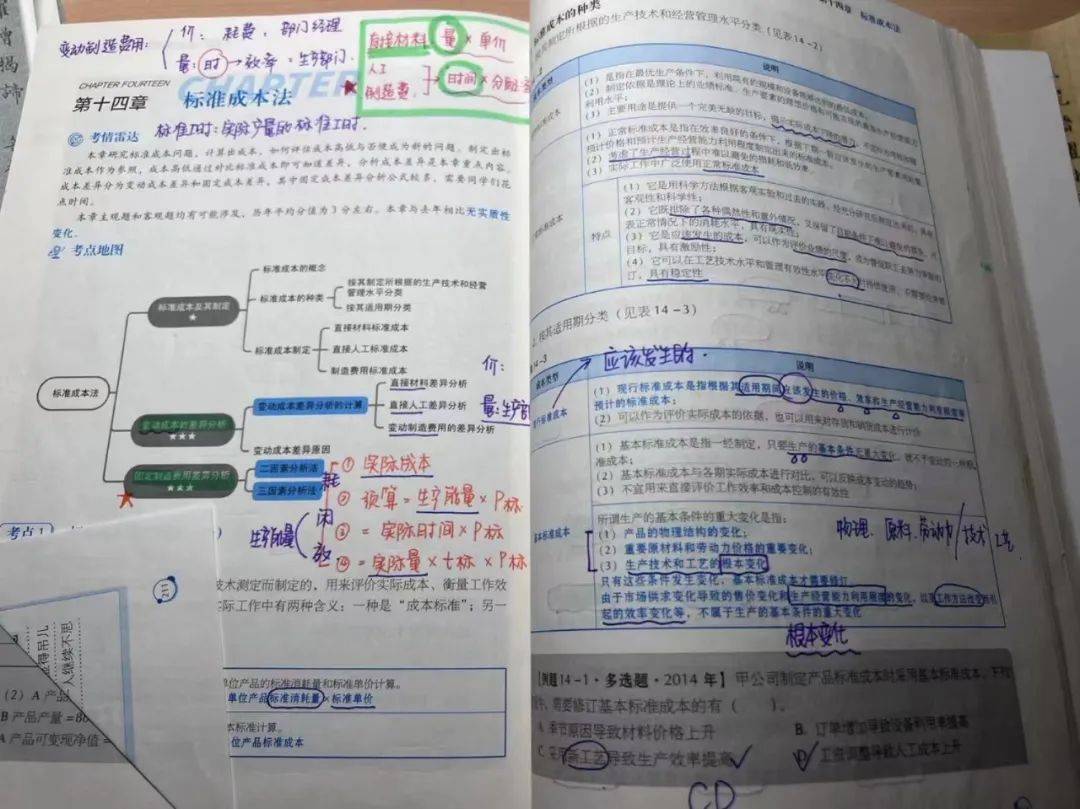 变动制造费用:
价: 耗费, 部门经理
量: 时→效率→生产部门.
直接材料 量×单价
人工
制造费
时间×分配
CHAPTER FOURTEEN
第十四章 标准成本法
标准工时: 实际产量的标准工时.
考情雷达
本章研究标准成本问题。计算出成本,如何评价成本高低与否便成为新的问题。制定出标
准成本作为参照,成本高低通过对比标准成本即可知道差异。分析成本差异是本章重点内容。
成本差异分为变动成本差异和固定成本差异,其中固定成本差异分析公式较多,需要同学们花
点时间。
本章主观题和客观题均有可能涉及,历年平均分值为3分左右。本章与去年相比无实质性
变化。
考点地图
标准成本法
标准成本及其制定
★
标准成本的概念
标准成本的种类
按其制定所根据的生产技术和经营
管理水平分类
按其适用期分类
标准成本制定
直接材料标准成本
直接人工标准成本
制造费用标准成本
变动成本的差异分析
★★★
变动成本差异分析的计算
直接材料差异分析
直接人工差异分析
变动制造费用的差异分析
变动成本差异原因
价:
量:生产部
固定制造费用差异分析
★★★
二因素分析法
三因素分析法
耗
① 实际成本
② 预算=生产能量×P标
③ =实际时间×P标
④ =实际量×t标×P标
生产能量
闲
效
考点1
211
技术测定而制定的,用来评价实际成本、衡量工作效
实际工作中有两种含义:一种是“成本标准”;另一
单位产品的标准消耗量和标准单价计算。
单位产品标准消耗量×标准单价
本标准计算。
位产品标准成本
人继续不思
(2) A产品
B产品产量=80
A产品可变现净值=
第十四章 标准成本法
标准成本的种类
按其制定所根据的生产技术和经营管理水平分类(见表14-2)
说明
(1) 是指在最优生产条件下,利用现有的规模和设备能够达到的最低成本;
(2) 制定依据是理论上的业绩标准、生产要素的理想价格和可能实现的最高生产经营能力
利用水平;
(3) 主要用途是提供一个完美无缺的目标,揭示实际成本下降的潜力
(1) 正常标准成本是指在效率良好的条件下,根据下期一般应该发生的生产要素消耗量、
预计价格和预计生产经营能力利用程度制定出来的标准成本;
(2) 考虑了生产经营过程中难以避免的损耗和低效率;
(3) 实际工作中广泛使用正常标准成本
特点
(1) 它是用科学方法根据客观实验和过去的实践,经充分研究后制定出来的,具有
客观性和科学性;
(2) 它既排除了各种偶然性和意外情况,又保留了目前条件下难以避免的损失,代
表正常情况下的消耗水平,具有现实性;
(3) 它是应该发生的成本,可以作为评价业绩的尺度,成为督促职工去努力争取的
目标,具有激励性;
(4) 它可以在工艺技术水平和管理有效性水平变化不大时持续使用,不需要经常修
订,具有稳定性
2. 按其适用期分类(见表14-3)
14-3
应该发生的.
成本类型 说明
现行标准成本
(1) 现行标准成本是指根据其适用期间应该发生的价格、效率和生产经营能力利用程度等
预计的标准成本;
(2) 可以作为评价实际成本的依据,也可以用来对存货和销货成本进行计价
基本标准成本
(1) 基本标准成本是指一经制定,只要生产的基本条件无重大变化,就不予变动的一种标
准成本;
(2) 基本标准成本与各期实际成本进行对比,可以反映成本变动的趋势;
(3) 不宜用来直接评价工作效率和成本控制的有效性
所谓生产的基本条件的重大变化是指:
(1) 产品的物理结构的变化;
(2) 重要原材料和劳动力价格的重要变化;
(3) 生产技术和工艺的根本变化
物理. 原料. 劳动力/技术 工艺
只有这些条件发生变化,基本标准成本才需要修订
由于市场供求变化导致的售价变化和生产经营能力利用程度的变化,以及工作方法改变而引
起的效率变化等,不属于生产的基本条件的重大变化
根本变化
【例题14-1·多选题·2014年】甲公司制定产品标准成本时采用基本标准成本。下列
需要修订基本标准成本的有( )。
A. 季节原因导致材料价格上升
B. 订单增加导致设备利用率提高
C. 采用新工艺导致生产效率提高
D. 工资调整导致人工成本上升
CD